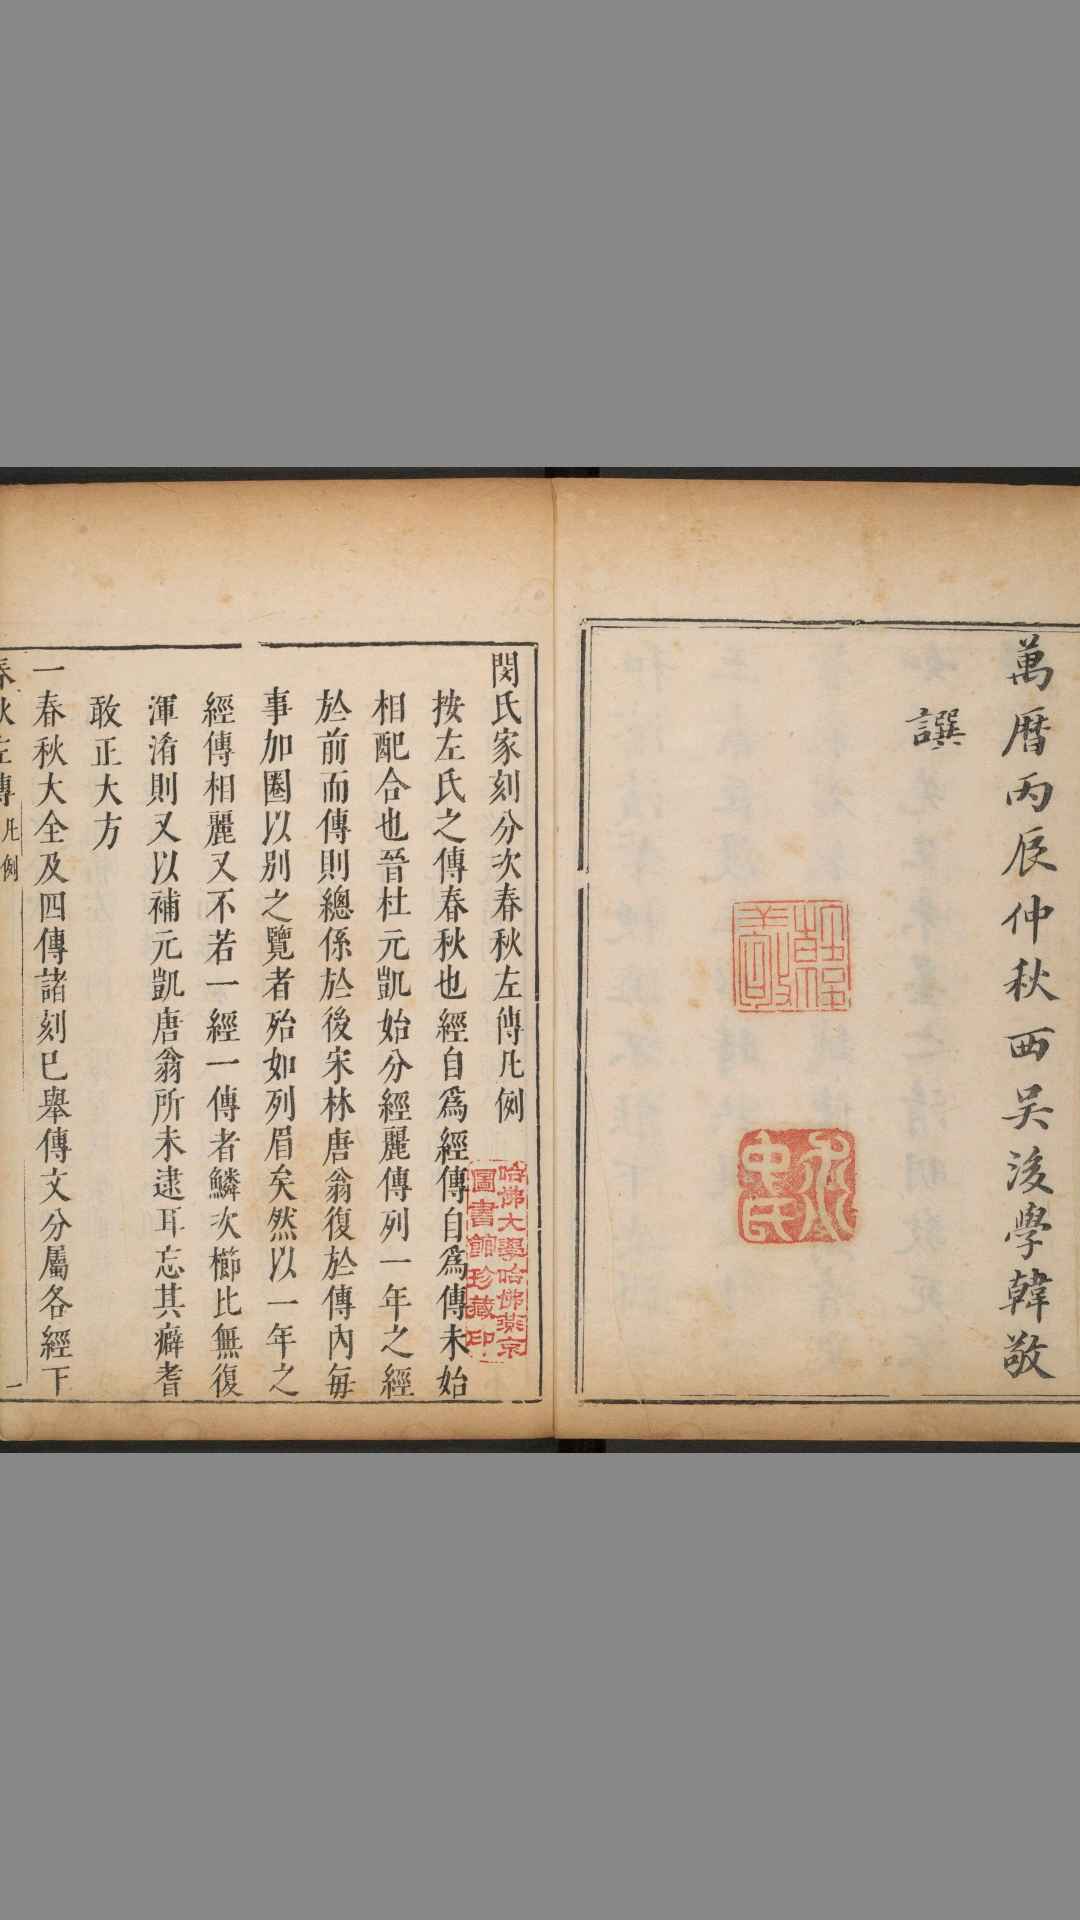 萬曆丙辰仲秋西吳後學韓敬
譔
韓敬
閔氏家刻分次春秋左傳凡例
按左氏之傳春秋也經自爲經傳自爲傳未始
相配合也晉杜元凱始分經麗傳列一年之經
於前而傳則總係於後宋林唐翁復於傳內每
事加圈以別之覽者殆如列眉矣然以一年之
經傳相麗又不若一經一傳者鱗次櫛比無復
渾淆則又以補元凱唐翁所未逮耳忘其癖耆
敢正大方
一春秋大全及四傳諸刻已舉傳文分屬各經下
春秋左傳凡例
一
哈佛大學哈佛燕京
圖書館珍藏印